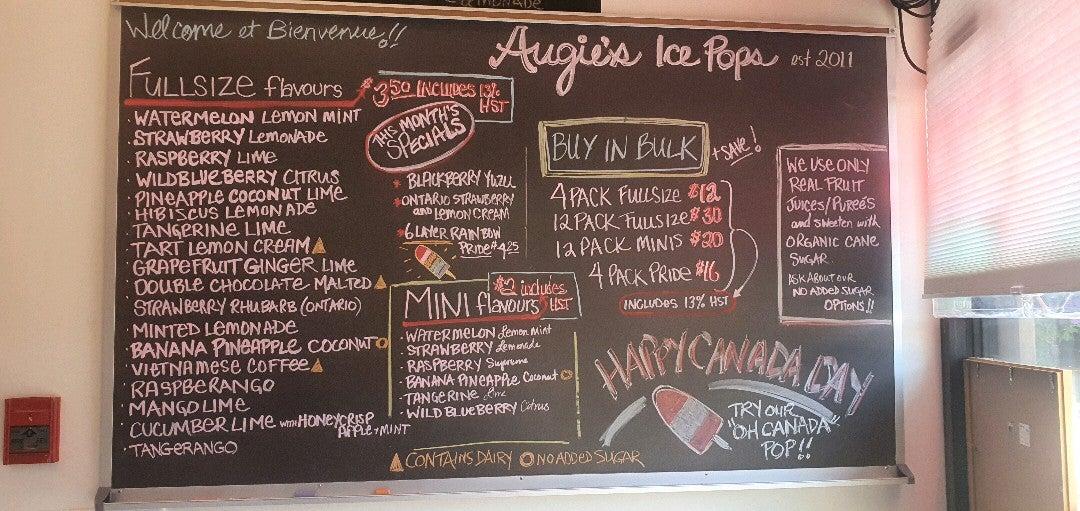 LEMONADE
Welcome et Bienvenue!!
Augie's Ice Pops est 2011
FULLSIZE flavours
$3.50 INCLUDES 13% HST
WATERMELON LEMON MINT
STRAWBERRY LEMONADE
RASPBERRY LIME
WILDBLUEBERRY CITRUS
PINEAPPLE COCONUT LIME
HIBISCUS LEMONADE
TANGERINE LIME
TART LEMON CREAM
GRAPEFRUIT GINGER LIME
DOUBLE CHOCOLATE MALTED
STRAWBERRY RHUBARB (ONTARIO)
MINTED LEMONADE
BANANA PINEAPPLE COCONUT
VIETNAMESE COFFEE
RASPBERANGO
MANGO LIME
CUCUMBER LIME with HONEYCRISP
APPLE + MINT
TANGERANGO
THIS MONTH'S
SPECIALS
* BLACKBERRY YUZU
* ONTARIO STRAWBERRY
AND LEMON CREAM
* 6 LAYER RAINBOW
PRIDE $4.25
MINI flavours
$2 includes
HST
WATERMELON Lemon Mint
STRAWBERRY Lemonade
RASPBERRY Supreme
BANANA PINEAPPLE Coconut
TANGERINE Lime
WILD BLUEBERRY Citrus
CONTAINS DAIRY NO ADDED SUGAR
BUY IN BULK
+ SAVE!
4 PACK FULLSIZE $12
12 PACK FULLSIZE $30
12 PACK MINIS $20
4 PACK PRIDE $16
INCLUDES 13% HST
WE USE ONLY
REAL FRUIT
JUICES/PUREÉS
and SWEETEN with
ORGANIC CANE
SUGAR.
ASK ABOUT OUR
NO ADDED SUGAR
OPTIONS!!
HAPPY CANADA DAY
TRY OUR
"OH CANADA"
POP!!